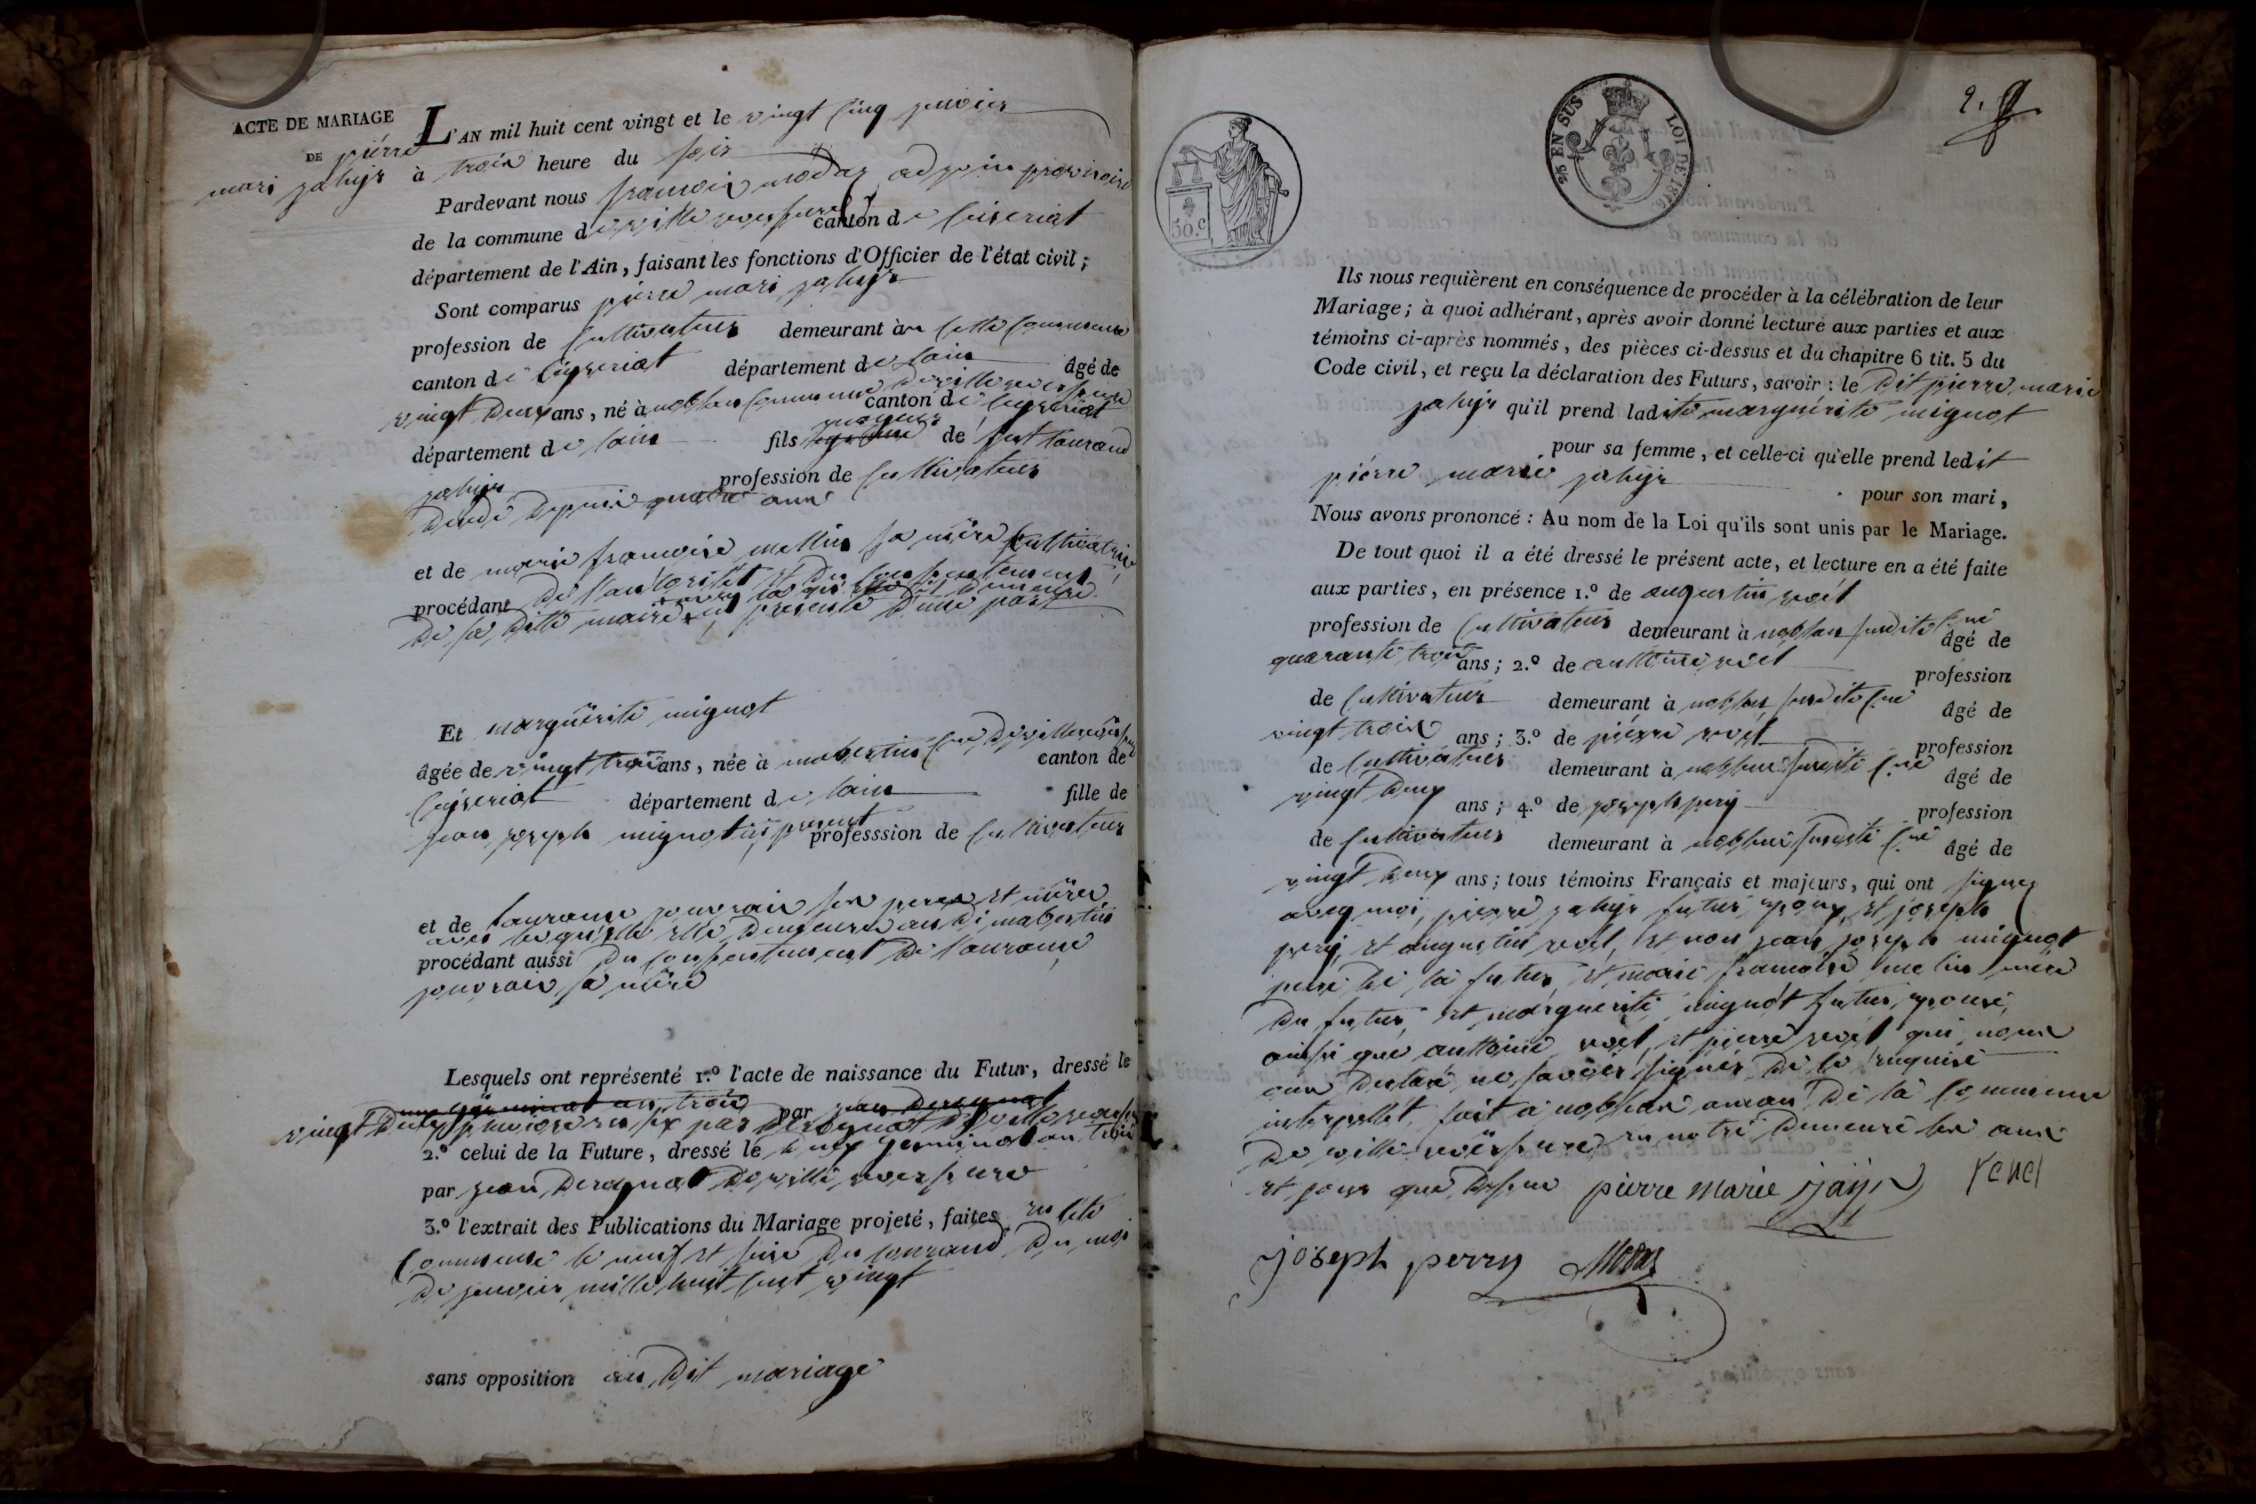 ACTE DE MARIAGE
DE pierre
mari jahyr
L'AN mil huit cent vingt et le vingt cinq janvier
à trois heure du soir
Pardevant nous francois modas adjoin provisoire
de la commune de ville reversure canton de Ceiseriat
département de l'Ain, faisant les fonctions d'Officier de l'état civil;
Sont comparus pierre mari jahyr
profession de Cultivateur demeurant à en cette Commune
canton de Ceyseriat département de lain âgé de
vingt deux ans, né à noblan Commune de ville reversure
canton de Ceyseriat
département de lain fils majeur de fut laurand
jahyr profession de Cultivateur
décédé depuis quatre ans
et de marie francoise mettin sa mère Cultivatrice
procédant de l'autorité et du Consentement
de sa ditte maire avec la qui il demeure
ici présente d'une part
Et marguerite mignot
âgée de vingt trois ans, née à mabestin Cne de ville reversure canton de
Ceyseriat département de lain fille de
jean joseph mignot ici présent professsion de Cultivateur
et de laurance jouvrais ses peres et mères
avec lesquels elle demeure audi mabestin
procédant aussi du Consentement de laurance
jouvrais sa mère
Lesquels ont représenté 1.º l'acte de naissance du Futur, dressé le
deux germinal an trois par jean deragnat
vingt deux pluviose an six par deragnat de ville reversure
2.º celui de la Future, dressé le deux germinal an trois
par jean deragnat de ville reversure
3.º l'extrait des Publications du Mariage projeté, faites en cete
Commune le neuf et seise du courand du moi
de janvier mille huit cent vingt
sans opposition au dit mariage
30.c
25 EN SUS
LOI DE 1816
2.
Ils nous requièrent en conséquence de procéder à la célébration de leur
Mariage; à quoi adhérant, après avoir donné lecture aux parties et aux
témoins ci-après nommés, des pièces ci-dessus et du chapitre 6 tit. 5 du
Code civil, et reçu la déclaration des Futurs, savoir: le dit pierre marie
jahyr qu'il prend ladite marguérite mignot
pour sa femme, et celle-ci qu'elle prend ledit
pierre marie jahyr pour son mari,
Nous avons prononcé: Au nom de la Loi qu'ils sont unis par le Mariage.
De tout quoi il a été dressé le présent acte, et lecture en a été faite
aux parties, en présence 1.º de augustin revel
profession de Cultivateur demeurant à noblan susdite Cne âgé de
quarante trois ans; 2.º de anttoine revel profession
de Cultivateur demeurant à noblan susdite Cne âgé de
vingt trois ans; 3.º de pierre revel profession
de Cultivateur demeurant à noblan susdite Cne âgé de
vingt deux ans; 4.º de joseph pery profession
de Cultivateur demeurant à noblan susdite Cne âgé de
vingt deux ans; tous témoins Français et majeurs, qui ont signez
avec moi, pierre jahyr futur epoux, et joseph
pery, et augustin revel, et non jean joseph mignot
pere de la futur, et marie francoise metin mère
du futur, et marguerite mignot futur epouse,
ainsi que anttoine revel, et pierre revel qui nous
ons déclaré ne savoir signer de le enquise
interpellé, fait à noblan amau de la Commune
de ville reversure en notre demeure les ans
et jour que dessus pierre marie jayr revel
joseph perry Modas